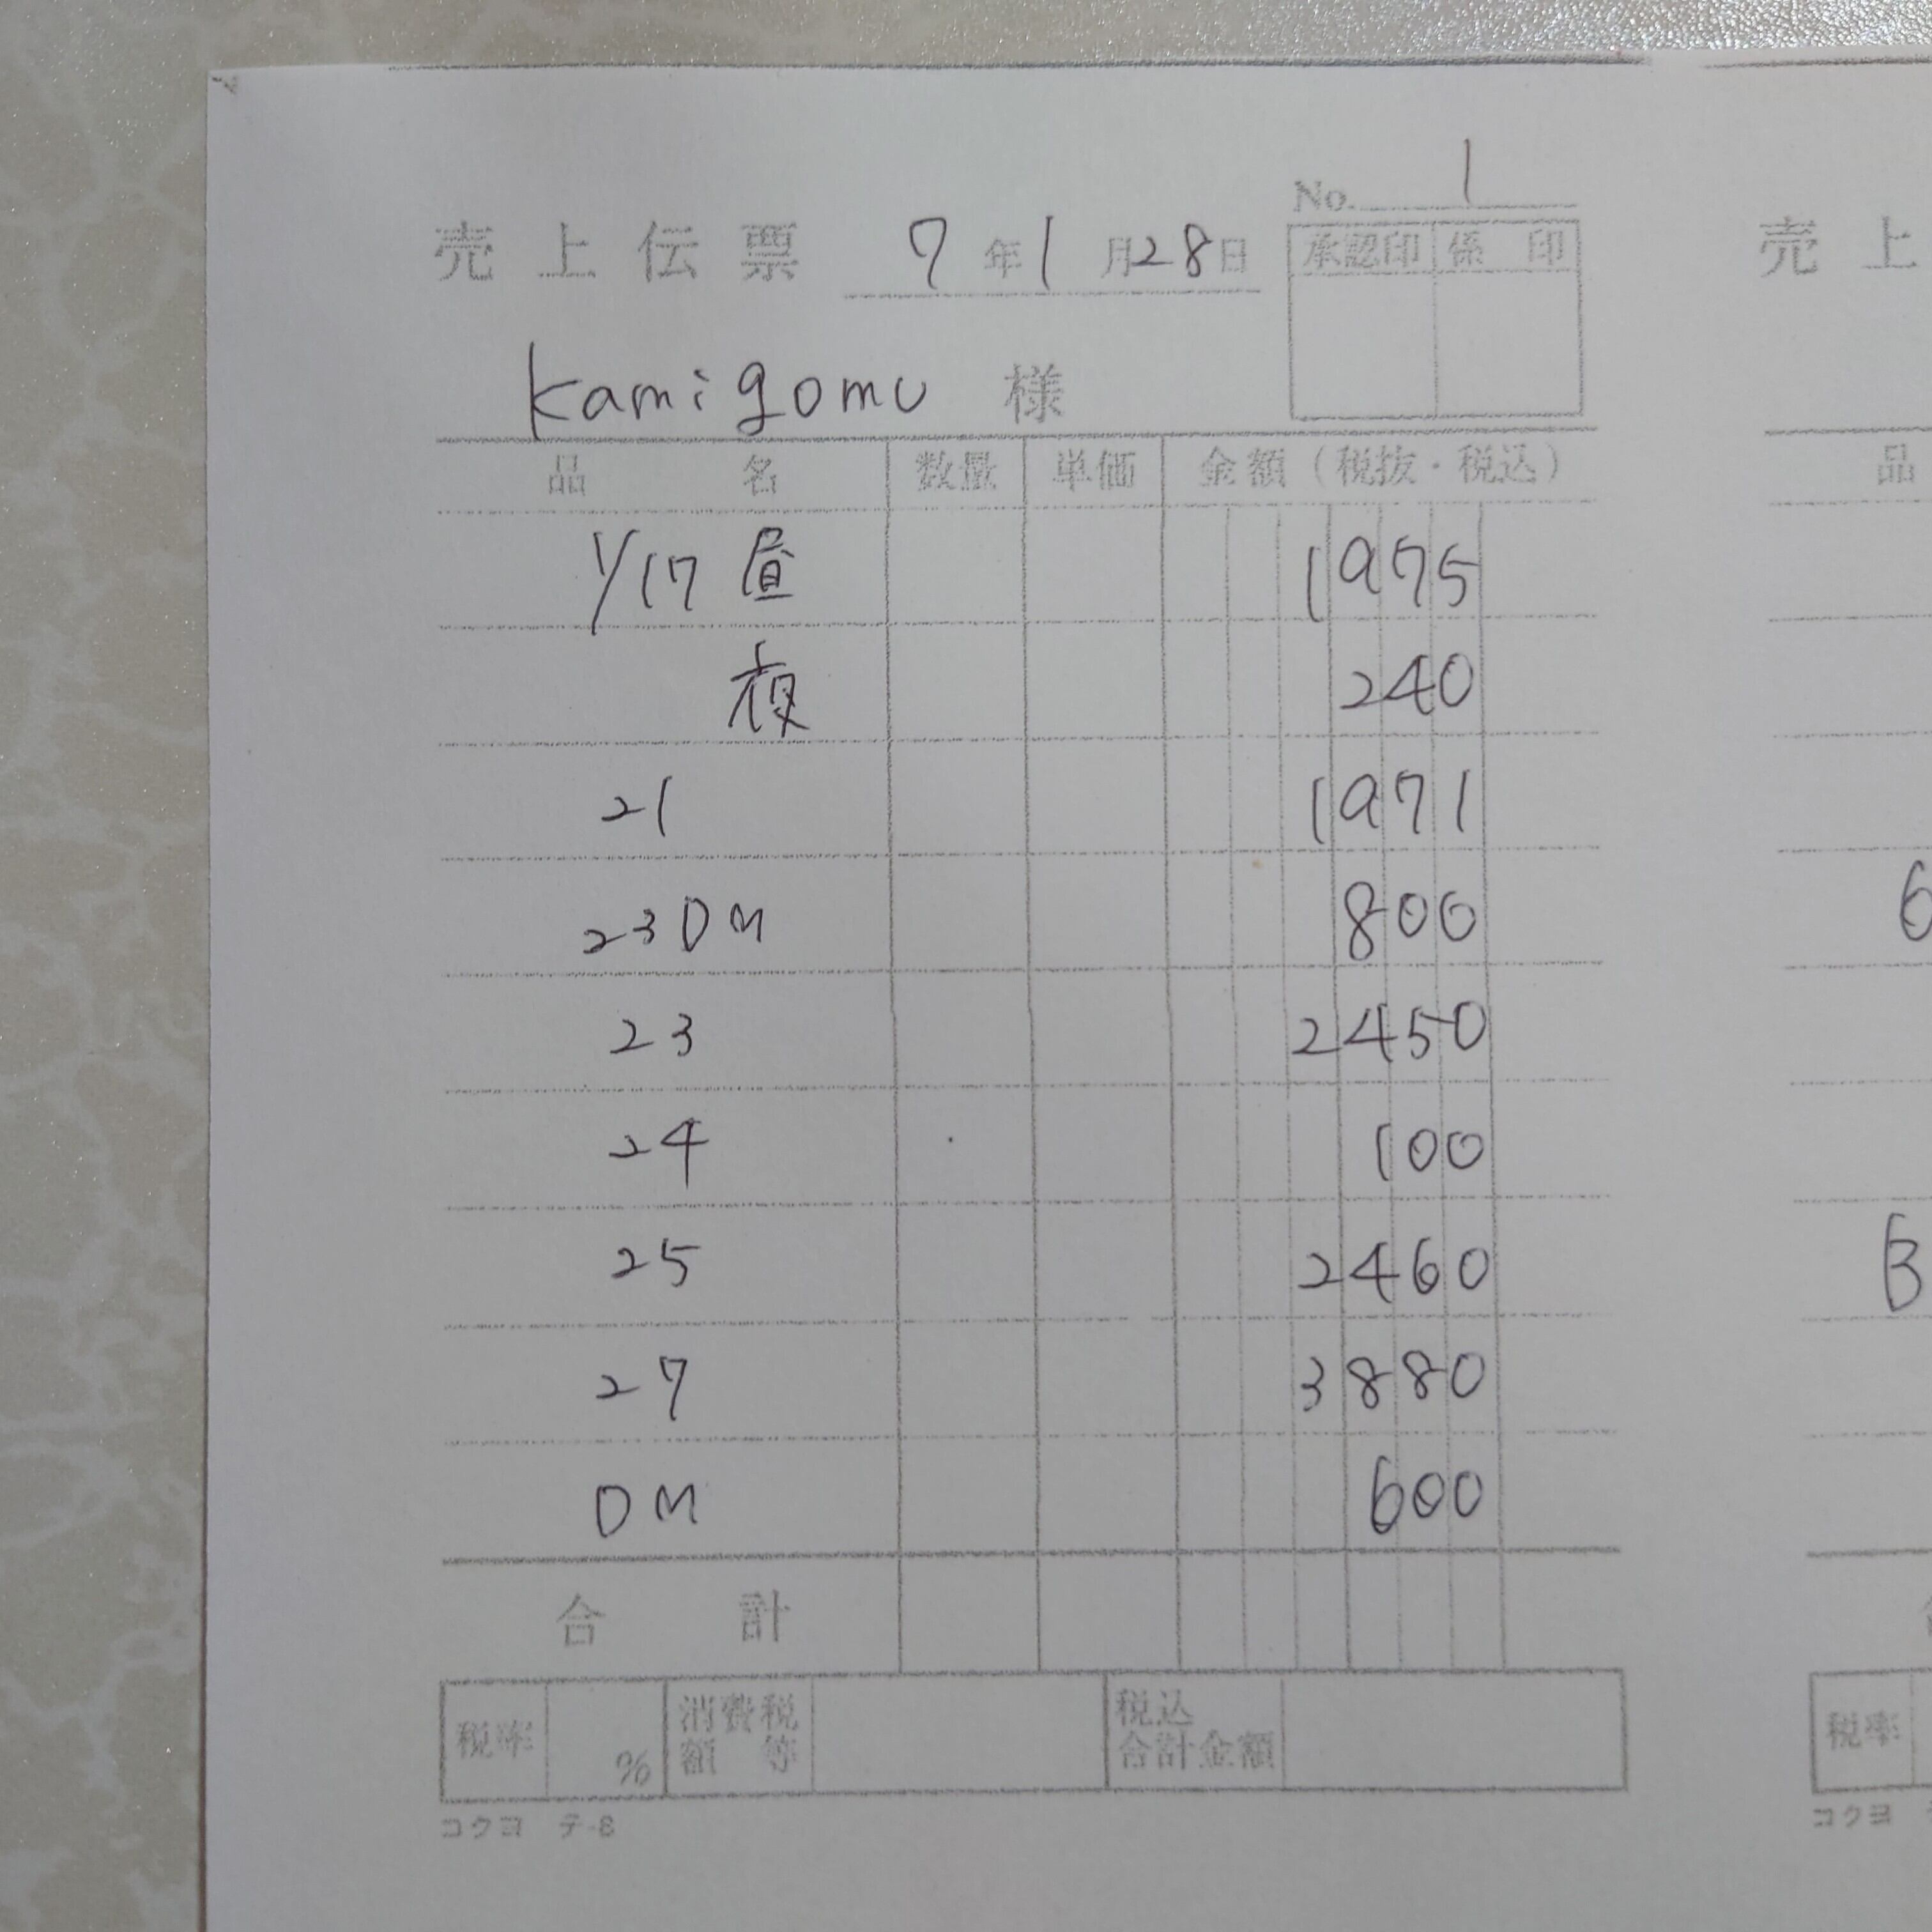 No. 1
売上伝票 7年1月28日
承認印 係印
kamigomu 様
品名 数量 単価 金額（税抜・税込）
1/17 昼 1975
夜 240
21 1971
23 DM 800
23 2450
24 100
25 2460
27 3880
DM 600
合計
税率 % 消費税額等 税込合計金額
コクヨ テ-8
売上
品
6
3
税率
コクヨ